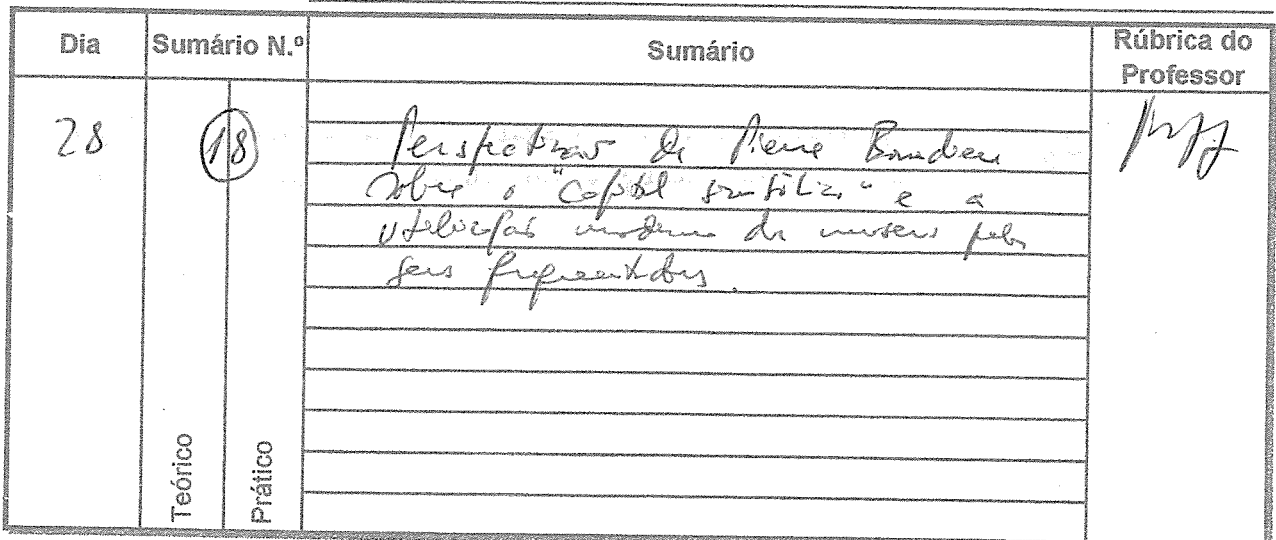 Dia Sumário N.º Sumário Rúbrica do Professor
28 18 Perspetivas de Pierre Bourdieu
sobre o "capital simbólico" e a
utilização moderna do museu pelos
seus frequentadores.
Teórico Prático